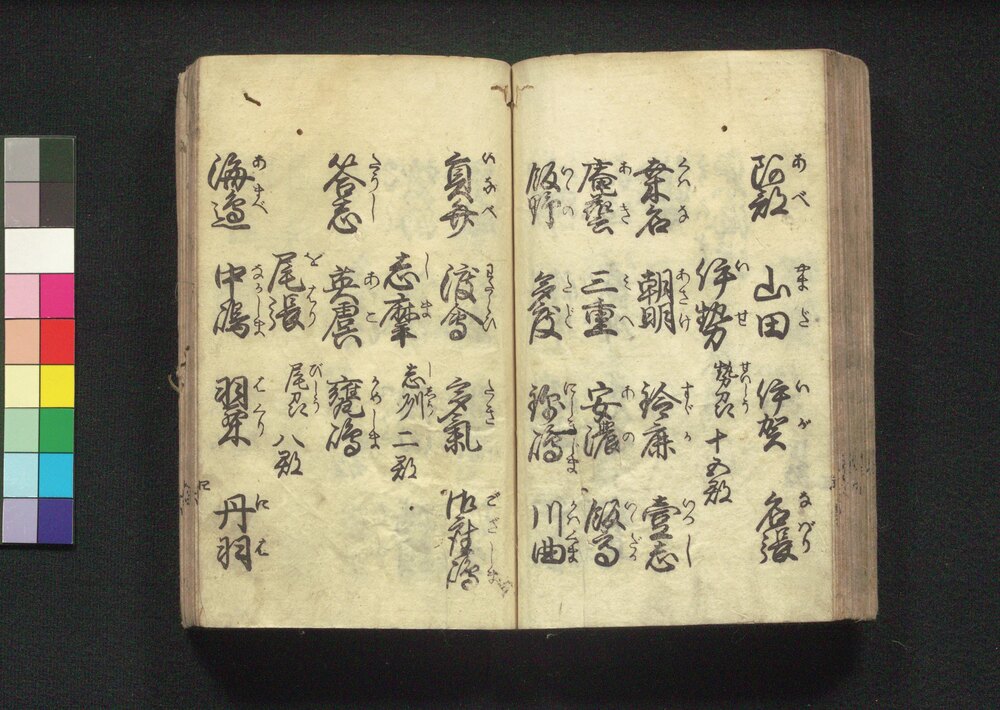 阿部 山田 伊賀 名張
あべ やまだ いが なばり
伊勢 勢州 十五郡
いせ せいしう
桑名 朝明 鈴鹿 壹志
くハな あさけ すゞか いつし
庵藝 三重 安濃 飯高
あき みへ あの いゝだか
飯野 多度 弥嶋 川曲
いゝの たど かハくま
員弁 渡會 多氣 御座嶋
いなべ わたらい たき ござしま
志摩 志州 二郡
しま ししう
答志 英虞 甕嶋
たうし あこ かめしま
尾張 尾州 八郡
をはり びしう
海邊 中嶋 羽栗 丹羽
あまべ なかしま はくり には